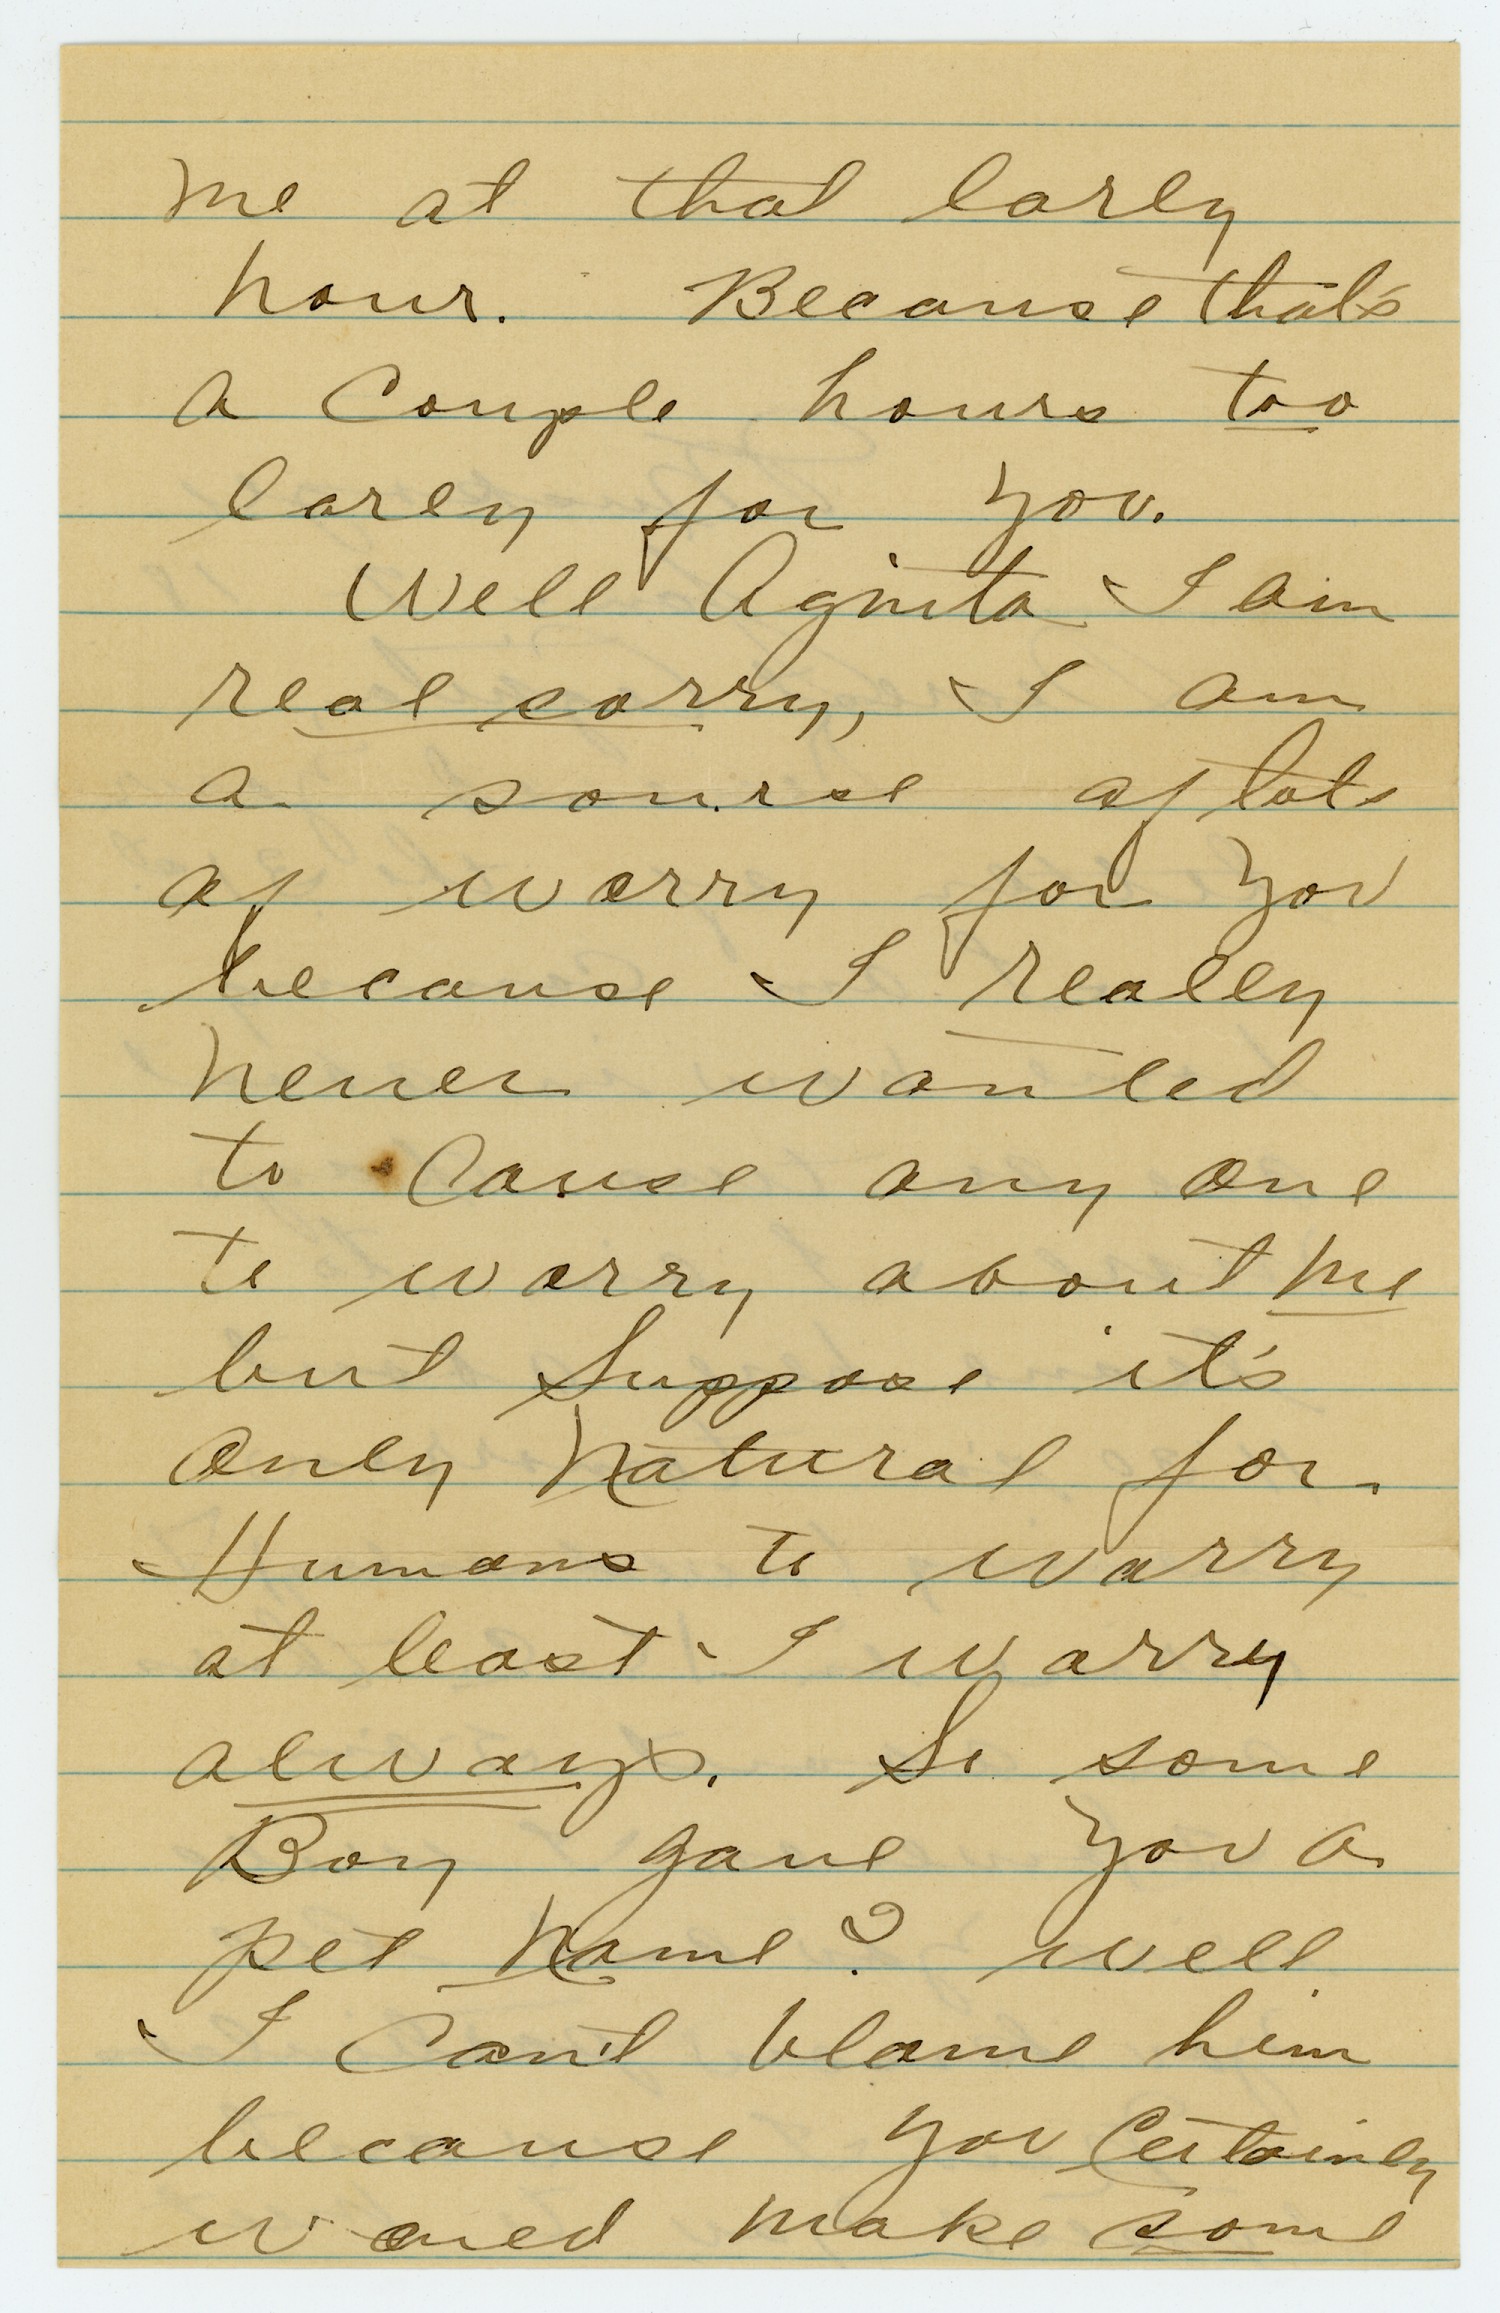 me at that early
hour. Because that's
a Couple hours too
early for you.
Well Agnita I am
real sorry, I am
a sourse of lots
of worry for you
because I really
never wanted
to Cause any one
to worry about me
but Suppose it's
only Natural for
Humans to worry
at least I worry
always. So some
Boy gave you a
pet Name? well
I Can't blame him
because you Certainly
woued make some